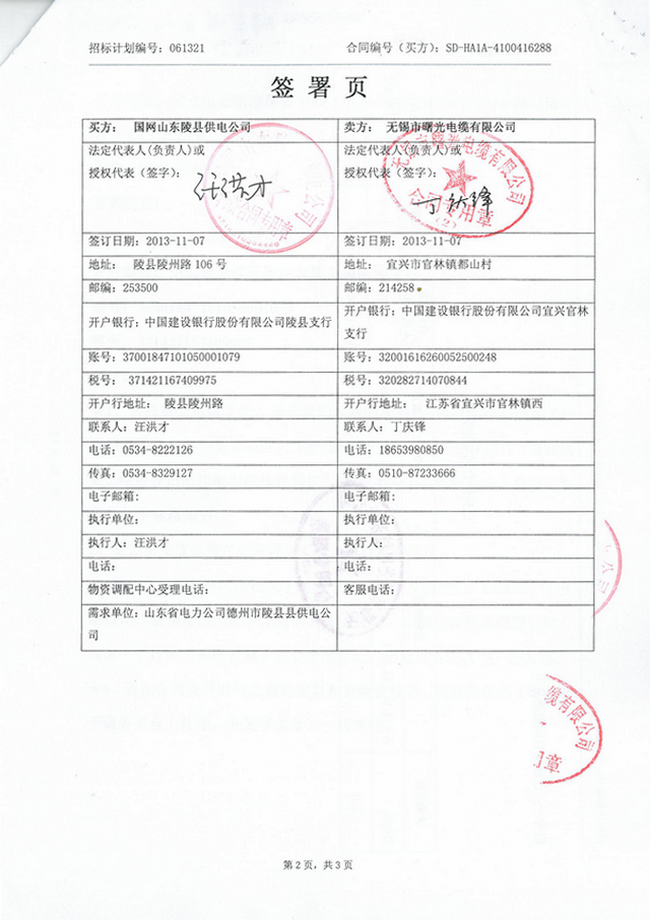 招标计划编号：061321 合同编号（买方）：SD-HA1A-4100416288
签 署 页
买方： 国网山东陵县供电公司 卖方： 无锡市曙光电缆有限公司
法定代表人(负责人)或 法定代表人(负责人)或
授权代表（签字）： 授权代表（签字）：
汪洪才
无锡市曙光电缆有限公司
合同专用章
(2)
签订日期：2013-11-07 签订日期：2013-11-07
地址： 陵县陵州路 106 号 地址： 宜兴市官林镇都山村
邮编：253500 邮编：214258
开户银行：中国建设银行股份有限公司陵县支行 开户银行：中国建设银行股份有限公司宜兴官林
支行
账号：37001847101050001079 账号：32001616260052500248
税号： 371421167409975 税号：320282714070844
开户行地址： 陵县陵州路 开户行地址： 江苏省宜兴市官林镇西
联系人：汪洪才 联系人：丁庆锋
电话：0534-8222126 电话：18653980850
传真：0534-8329127 传真：0510-87233666
电子邮箱: 电子邮箱:
执行单位: 执行单位:
执行人：汪洪才 执行人：
电话: 电话:
物资调配中心受理电话: 客服电话:
需求单位：山东省电力公司德州市陵县县供电公
司
缆有限公司
章
第 2 页，共 3 页